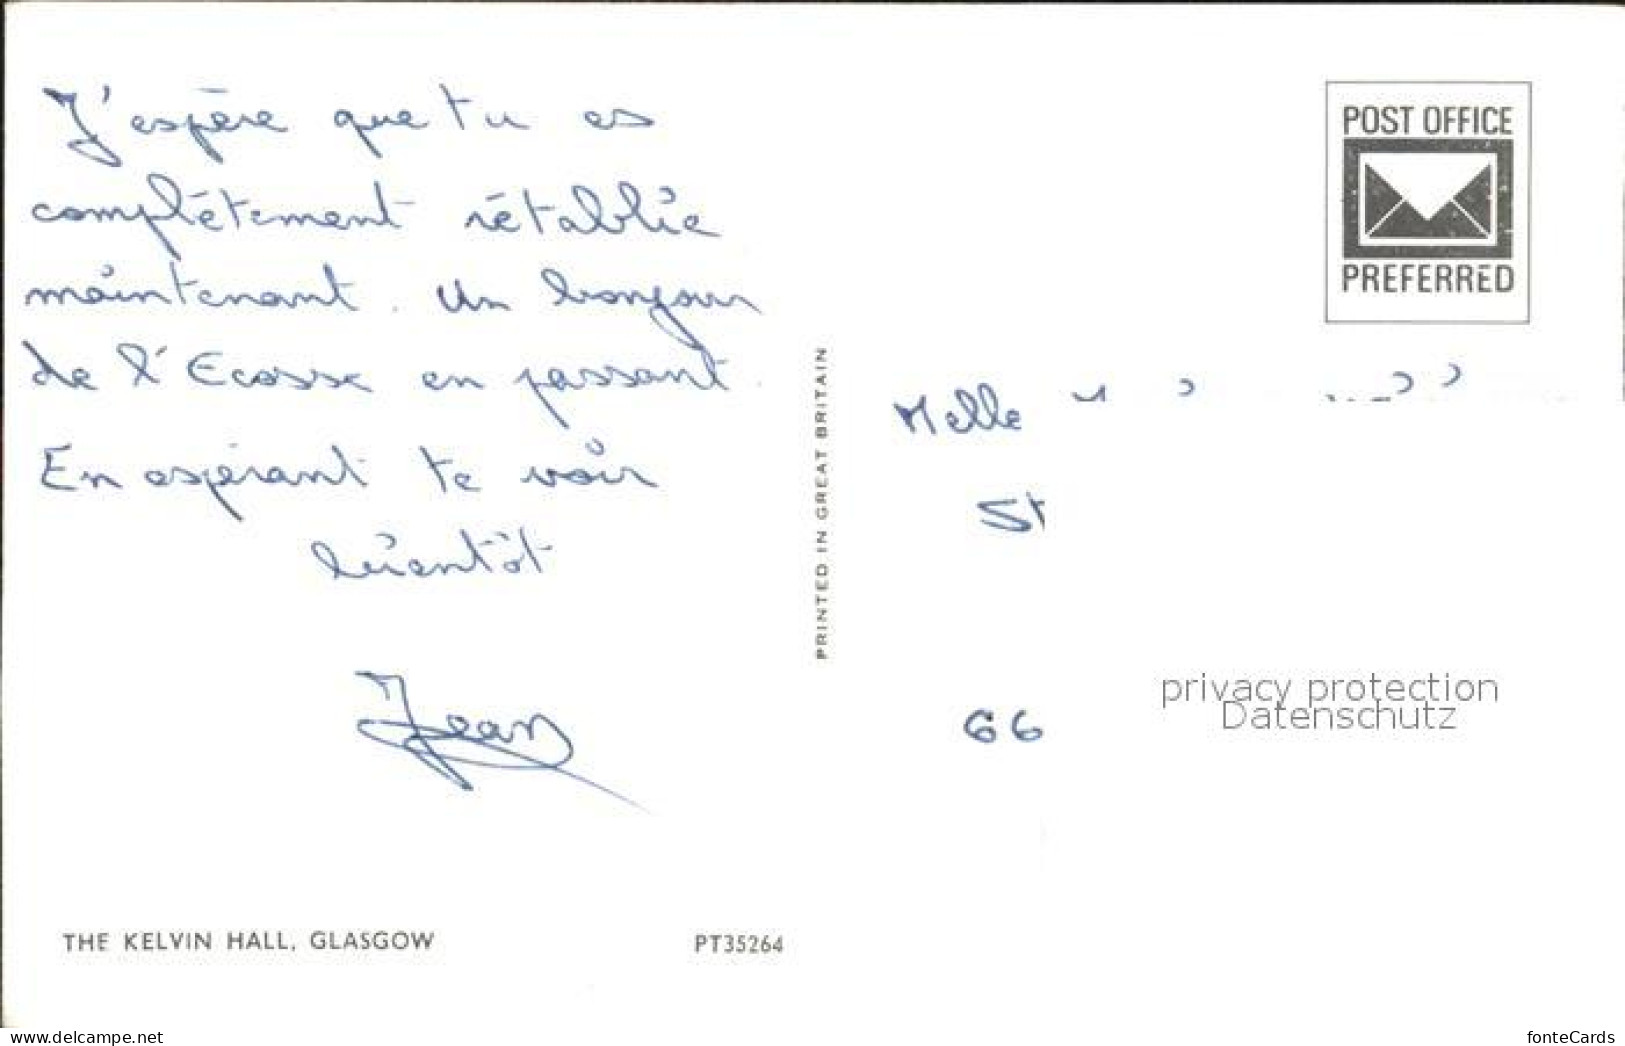 J'espère que tu es
complétement rétablie
maintenant. Un bonjour
de l'Ecosse en passant.
En espérant te voir
bientôt
Jean
THE KELVIN HALL, GLASGOW
PT35264
PRINTED IN GREAT BRITAIN
POST OFFICE
PREFERRED
Melle
St
66
privacy protection
Datenschutz
www.delcampe.net
fonteCards